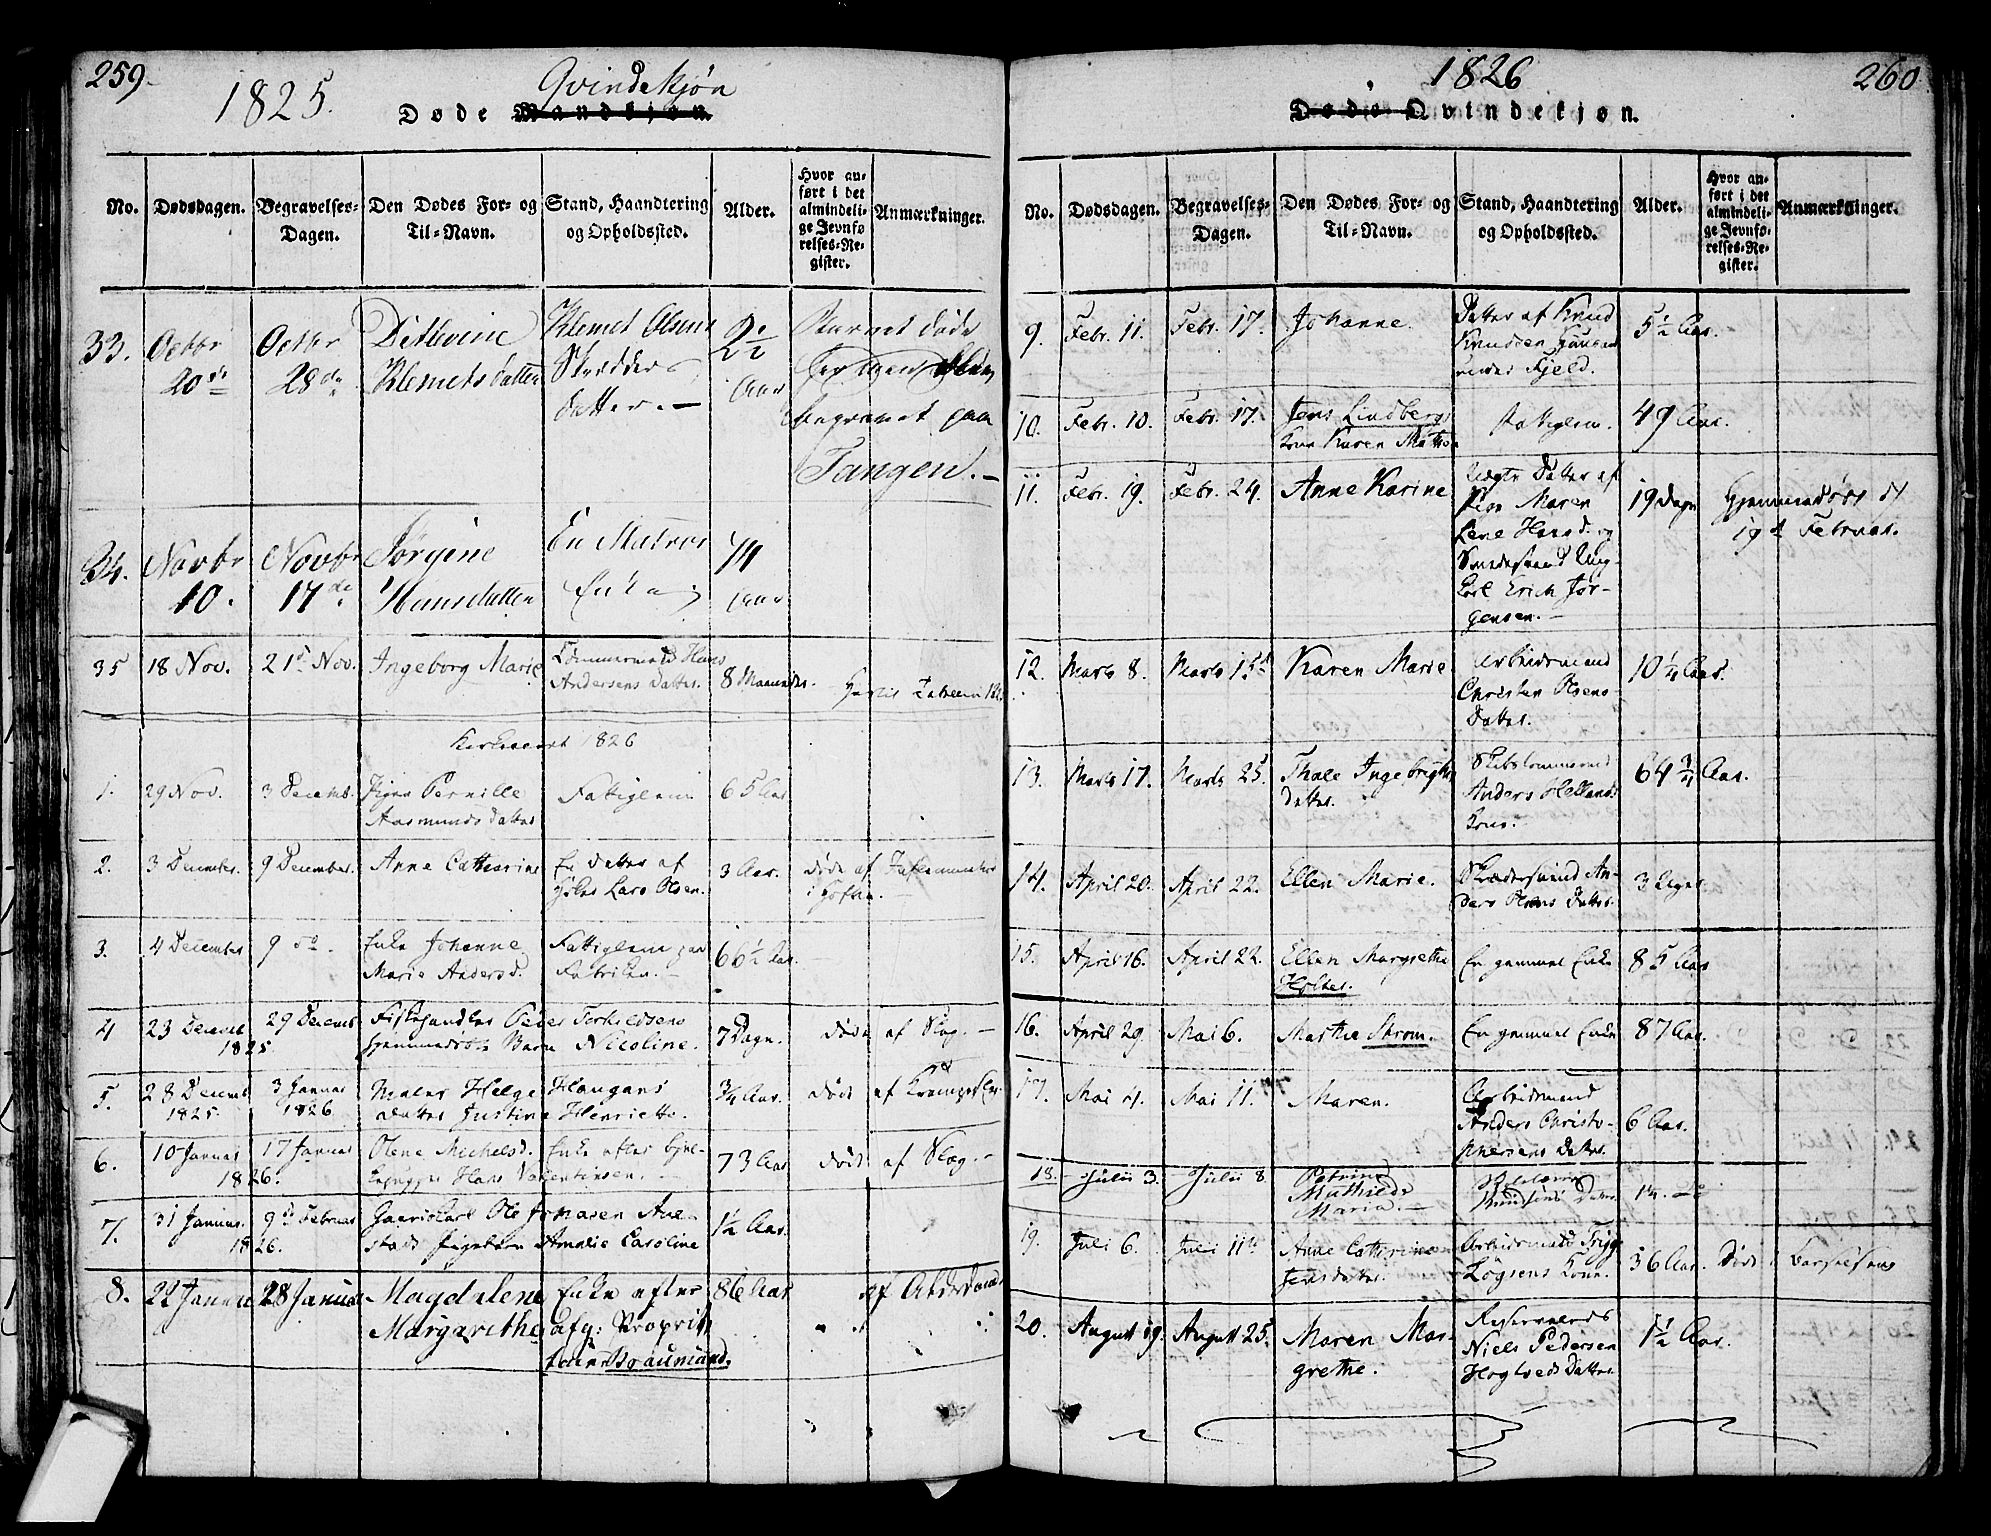 259.
1825.
Qvindekjøn
Døde Mandkjøn.
No. Dødsdagen. Begravelses-Dagen. Den Dødes For- og Til-Navn. Stand, Haandtering og Opholdssted. Alder. Hvor anført i det almindelige Jevnførelses-Register. Anmærkninger.
33. Octbr 20 Octbr 28de Ditlevine Klemetsdatter Klemet Olsens datter.- 2½ Aar Barnet døde begravet paa Tangen.-
34. Novbr 10. Novbr 17de Jørgine Hansdatter En Matros Enke 74 Aar
35 18 Nov. 21 Nov. Ingeborg Marie Tømmermand Hans Andersens Datter. 8 Maaneder.
Kirkeaaret 1826
1. 29 Nov. 3 Decemb. Pernille Aasmunds Datter Fattiglem 65 Aar
2. 3 December. 9 December. Anne Catharine En Datter af Lars Olsen. 3 Aar. døde af
3. 4 December 9 do. Enke Johanne Marie Andersd. Fattiglem paa Fabriken.- 66½ Aar.
4 23 Decemb 1825 29 Decemb Fiskehandler Peder Terkildsens hjemmedøbte Barn Nicoline. 7 Dage. døde af Slag.-
5. 28 Decemb 1825. 3 Januar 1826 Maler Helge Haugans Datter Justine Henriette. ¾ Aar. døde af
6. 10 Januar 1826. 17 Januar Olene Michelsd. Enke efter Hans Valentinsen. 73 Aar døde af Slag.-
7. 31 Januar. 1826. 9de Februar Ole Amalie Caroline 1½ Aar.
8. 22 Januar 28 Januar Magdalene Margarethe Enke efter afg: Propritair Braumand. 86 Aar af Alderdom
1826
260
Døde Qvindekjøn.
No. Dødsdagen. Begravelses-Dagen. Den Dødes For- og Til-Navn. Stand, Haandtering og Opholdssted. Alder. Hvor anført i det almindelige Jevnførelses-Register. Anmærkninger.
9. Febr. 11. Febr. 17. Johanne. Datter af Knud Knudsen under Fjeld. 5½ Aar.
10. Febr. 10. Febr. 17. Jens Lindbergs Kone Karen Fattiglem. 49 Aar.
11. Febr. 19. Febr. 24. Anne Karine Uægte Datter af Pige Maren Lene Hansd. og Ungkarl Erich Jørgensen.- 19 Dage Hjemmedøbt d 19de Februar.
12. Marts 8. Marts 15 Karen Marie Arbeidsmand Christen Olsens Datter. 10¼ Aar.
13. Marts 17. Marts 25 Thale Ingebrigts Datter. Skibstømmermand Anders Hellands Kone. 64¾ Aar.
14. April 20. April 22. Ellen Marie. Skrædersvend Anders Olsens Datter. 3 Uger.
15. April 16. April 22. Ellen Margrethe Holter. En gammel Enke 85 Aar
16. April 29. Mai 6. Marthe Strøm. En gammel Enke 87 Aar.
17. Mai 4. Mai 11. Maren. Arbeidsmand Anders Christophersens Datter. 6 Aar.
18. Julii 3. Julii 8 Petrine Mathilde Maria.- Knudsens Datter
19. Juli 6. Juli 11te Anne Catherine Jensdatter. Arbeidsmand Kone. 36 Aar. Døde i Barselseng
20. August 19. August 25. Maren Margrethe. Niels Pedersen Datter 1½ Aar.